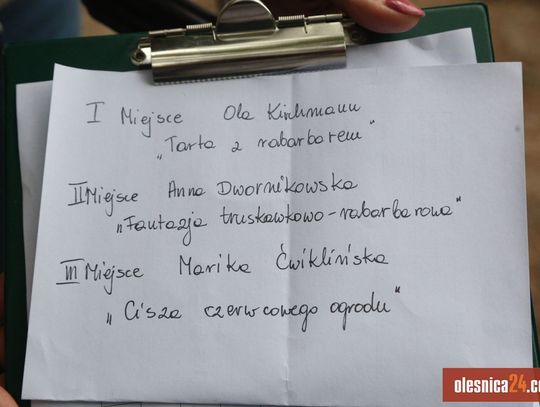 I Miejsce Ola Kirchmann
„Tarta z rabarbarem"
II Miejsce Anna Dwornikowska
„Fantazja truskawkowo-rabarbarowa"
III Miejsce Marika Ćwiklińska
„Cisza czerwcowego ogrodu"
olesnica24.c